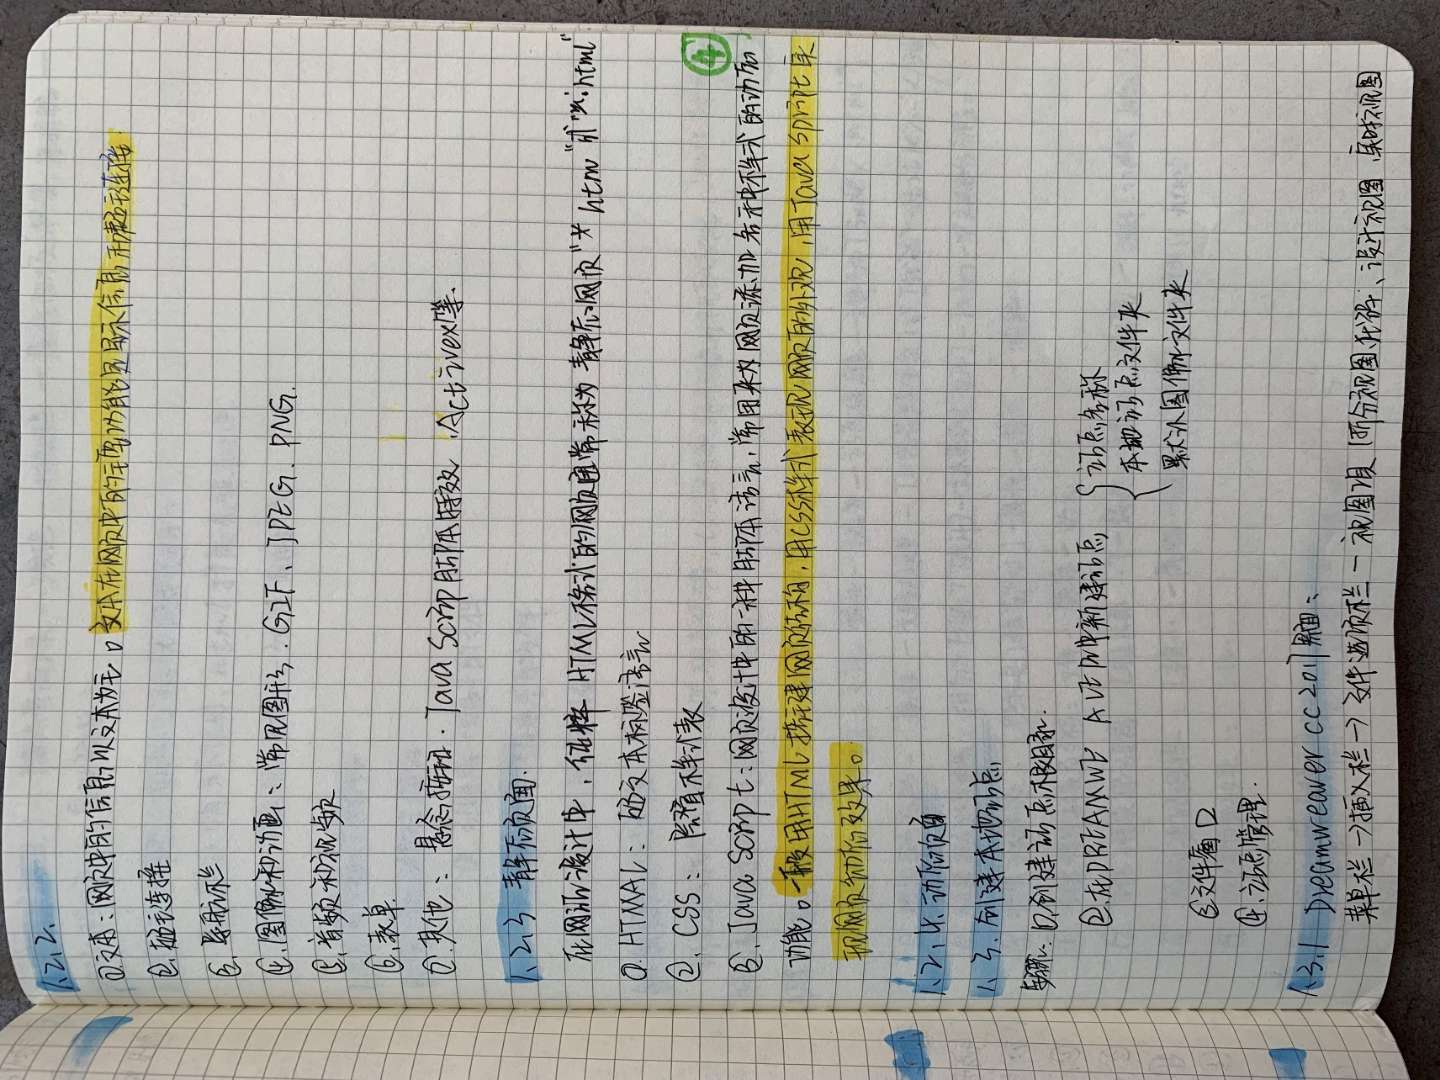 1.2.2.
①文本：网页中的信息以文本为主。文本在网页中的主要功能是显示信息和超链接.
②.超链接
③.导航栏
④.图像和动画：常见图形.GIF、JPEG、PNG.
⑤.音频和视频
⑥.表单
⑦.其他：悬念按钮.Java Scrip脚本特效.Activex等.
1.2.3 静态页面.
在网站设计中，纯粹 HTML格式的网页通常称为 静态网页"*htm"或"*.html"
①.HTMAL：超文本标签语言
②.CSS：层叠样式表
③.Java Script：网页设计中的一种脚本语言，常用来为网页添加各种样式的动态
④
功能。一般用HTML搭建网页结构，用CSS样式表现网页的外观，用Java sprint实
现网页动态效果。
1.2.4.动态页面
1.3.创建本地站点
步骤：①创建站点根目录.
②.在DREAMWE 中新建站点 {站点名称
本地站点文件夹
默认图像文件夹
③文件窗口
④.站点管理.
1.3.1 Dreamweaver CC 2017界面：
菜单栏→插入栏→文件选项栏—视图 [拆分视图、代码、设计视图、实时视图